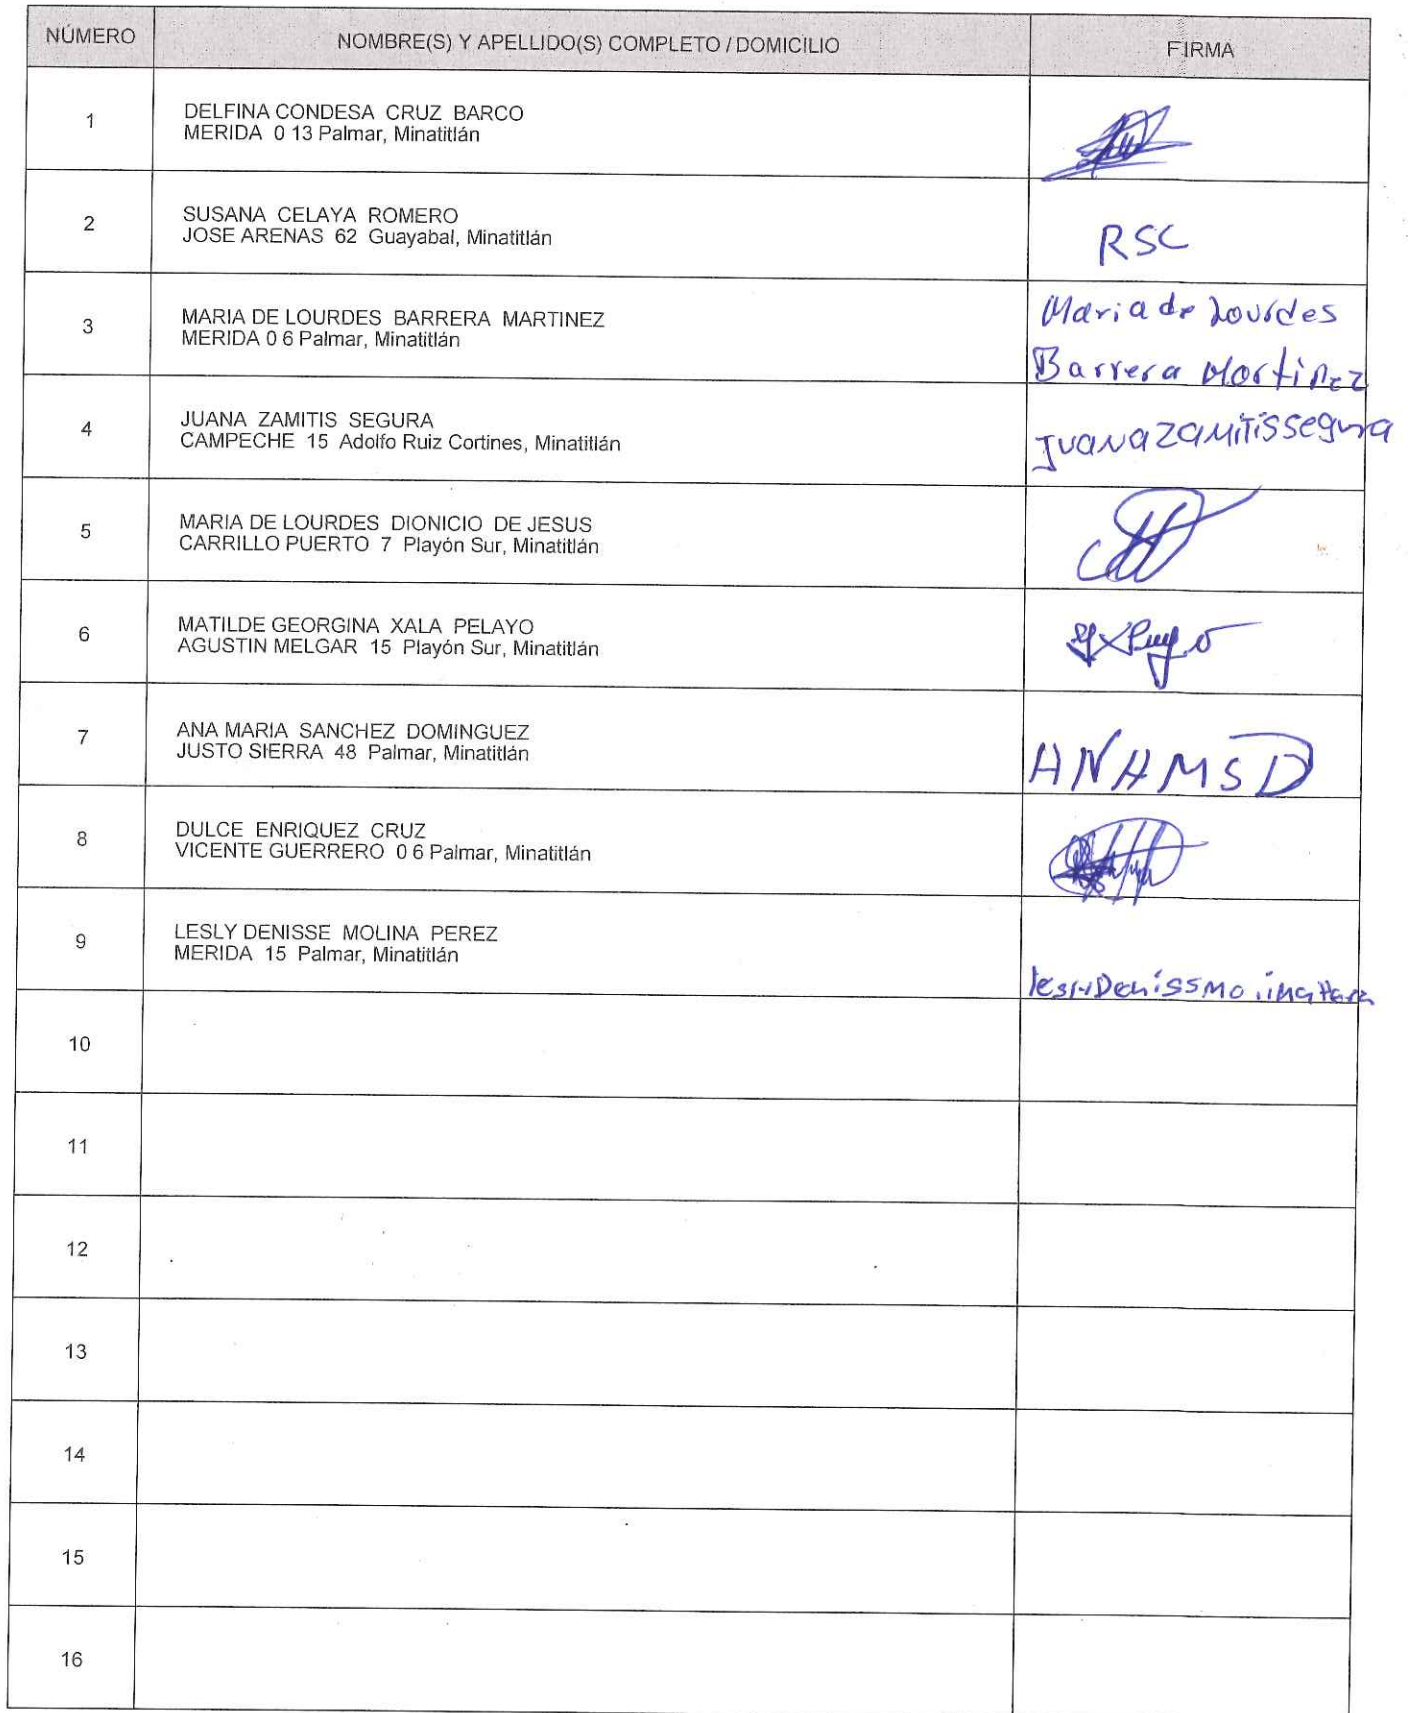 NÚMERO
NOMBRE(S) Y APELLIDO(S) COMPLETO / DOMICILIO
FIRMA
1
DELFINA CONDESA CRUZ BARCO
MERIDA 0 13 Palmar, Minatitlán
2
SUSANA CELAYA ROMERO
JOSE ARENAS 62 Guayabal, Minatitlán
RSC
3
MARIA DE LOURDES BARRERA MARTINEZ
MERIDA 0 6 Palmar, Minatitlán
Maria de Lourdes
Barrera Martinez
4
JUANA ZAMITIS SEGURA
CAMPECHE 15 Adolfo Ruiz Cortines, Minatitlán
JUANA ZAMITIS segura
5
MARIA DE LOURDES DIONICIO DE JESUS
CARRILLO PUERTO 7 Playón Sur, Minatitlán
6
MATILDE GEORGINA XALA PELAYO
AGUSTIN MELGAR 15 Playón Sur, Minatitlán
7
ANA MARIA SANCHEZ DOMINGUEZ
JUSTO SIERRA 48 Palmar, Minatitlán
ANAMSD
8
DULCE ENRIQUEZ CRUZ
VICENTE GUERRERO 0 6 Palmar, Minatitlán
9
LESLY DENISSE MOLINA PEREZ
MERIDA 15 Palmar, Minatitlán
10
11
12
13
14
15
16